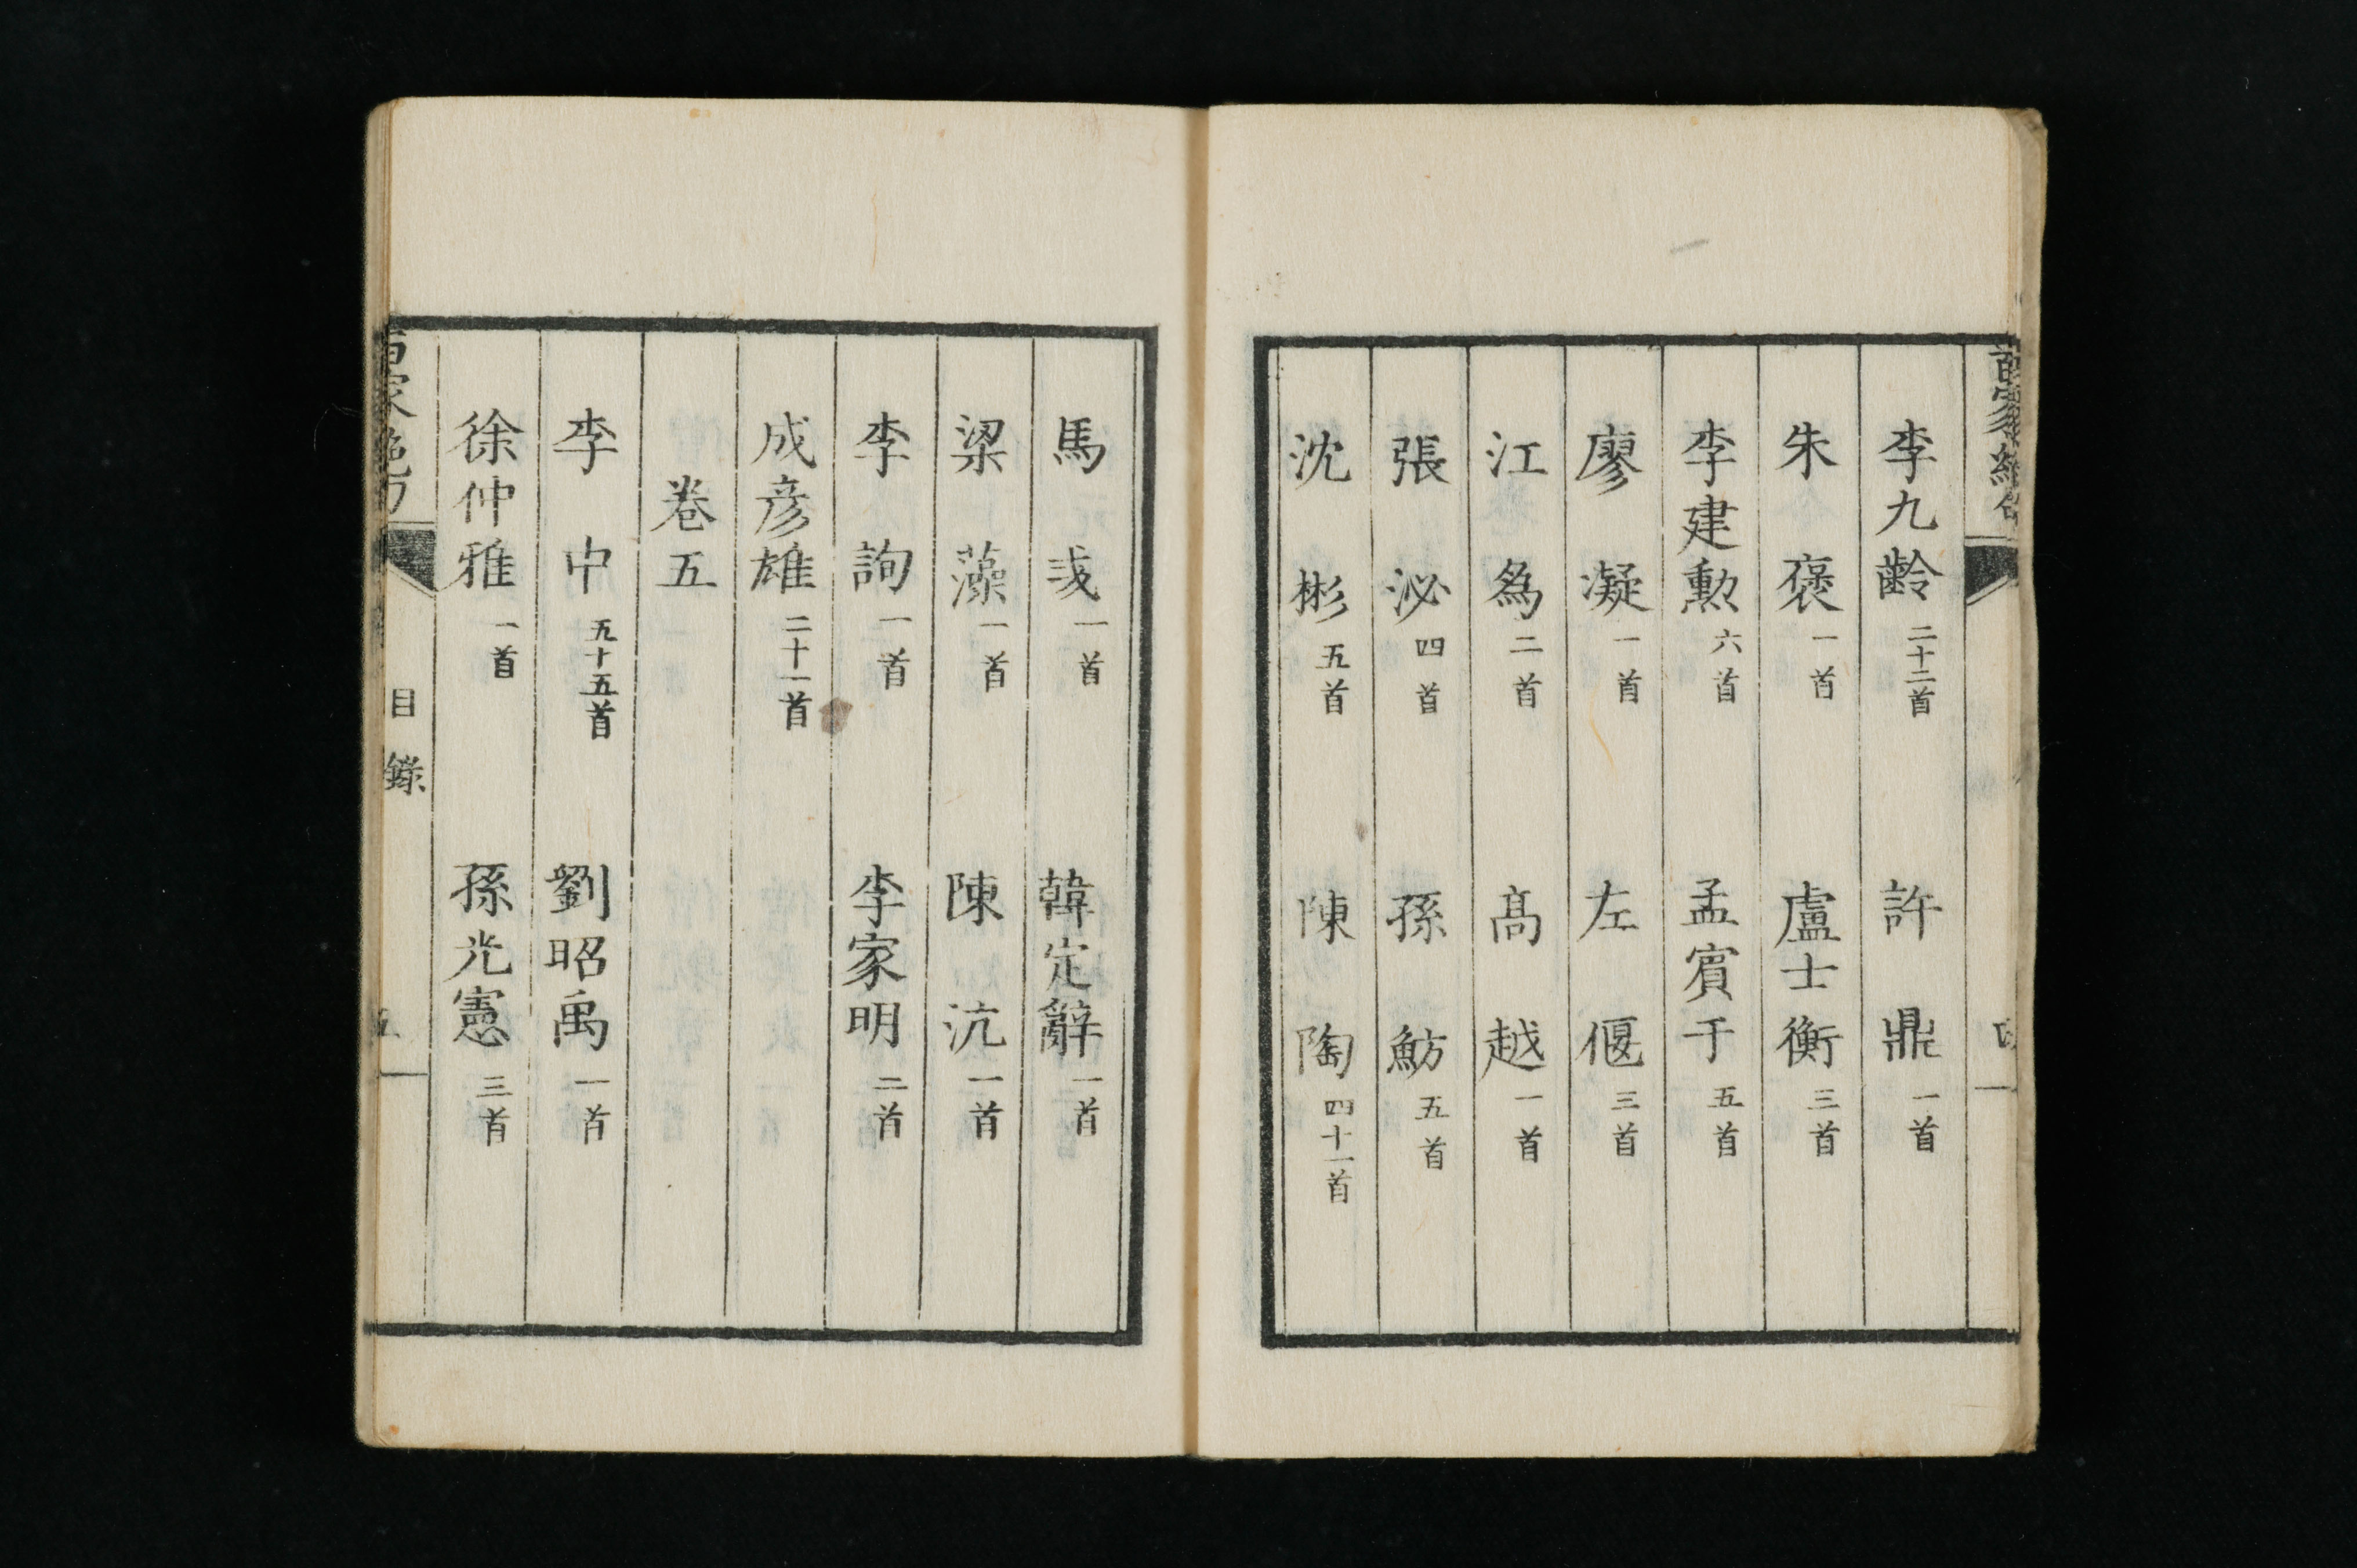 李九齡 二十二首 許鼎 一首
朱褒 一首 盧士衡 三首
李建勲 六首 孟賓于 五首
廖凝 一首 左偃 三首
江爲 二首 髙越 一首
張泌 四首 孫魴 五首
沈彬 五首 陳陶 四十一首
馬彧 一首 韓定辭 一首
梁藻 一首 陳沆 一首
李詢 一首 李家明 二首
成彦雄 二十一首
卷五
李中 五十五首 劉昭禹 一首
徐仲雅 一首 孫光憲 三首
目錄 五